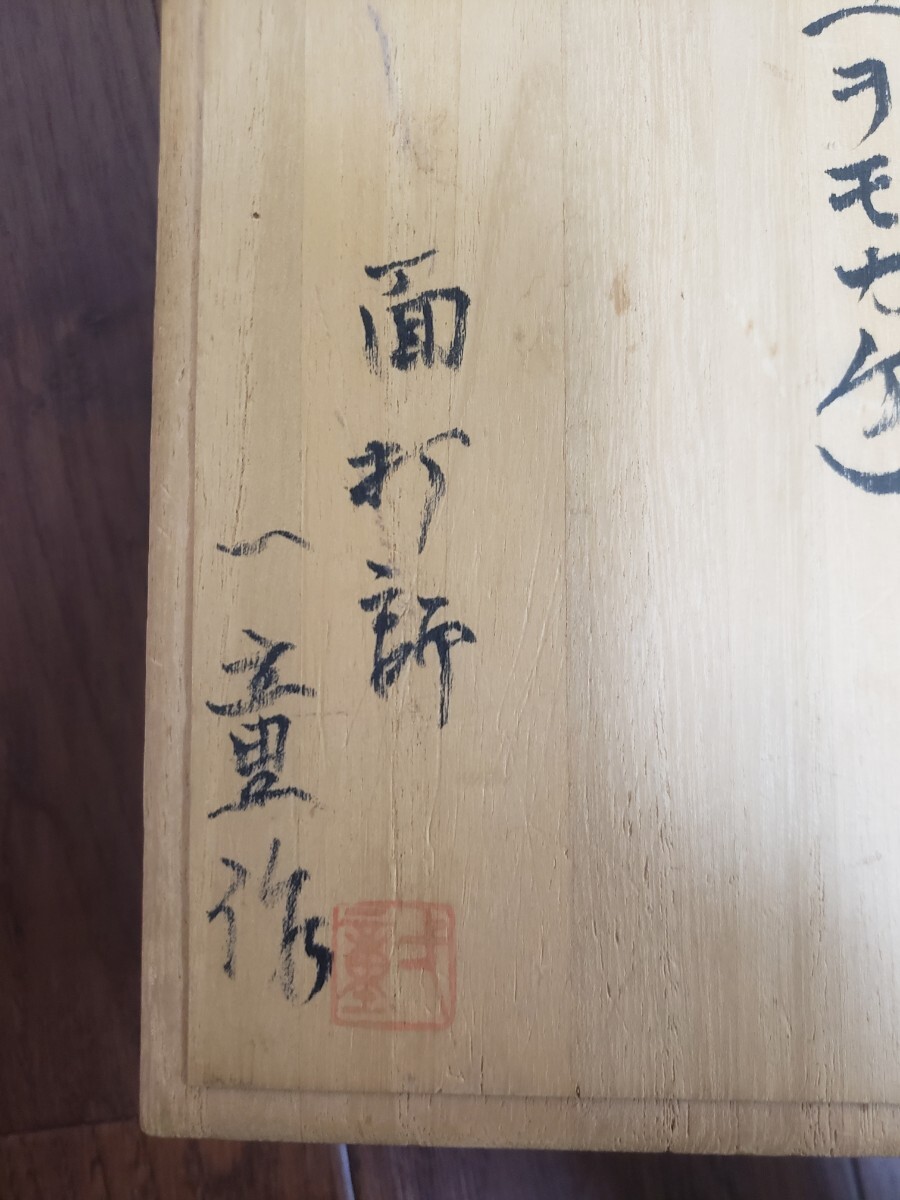 （ヲモカケ）
面打師
一童作